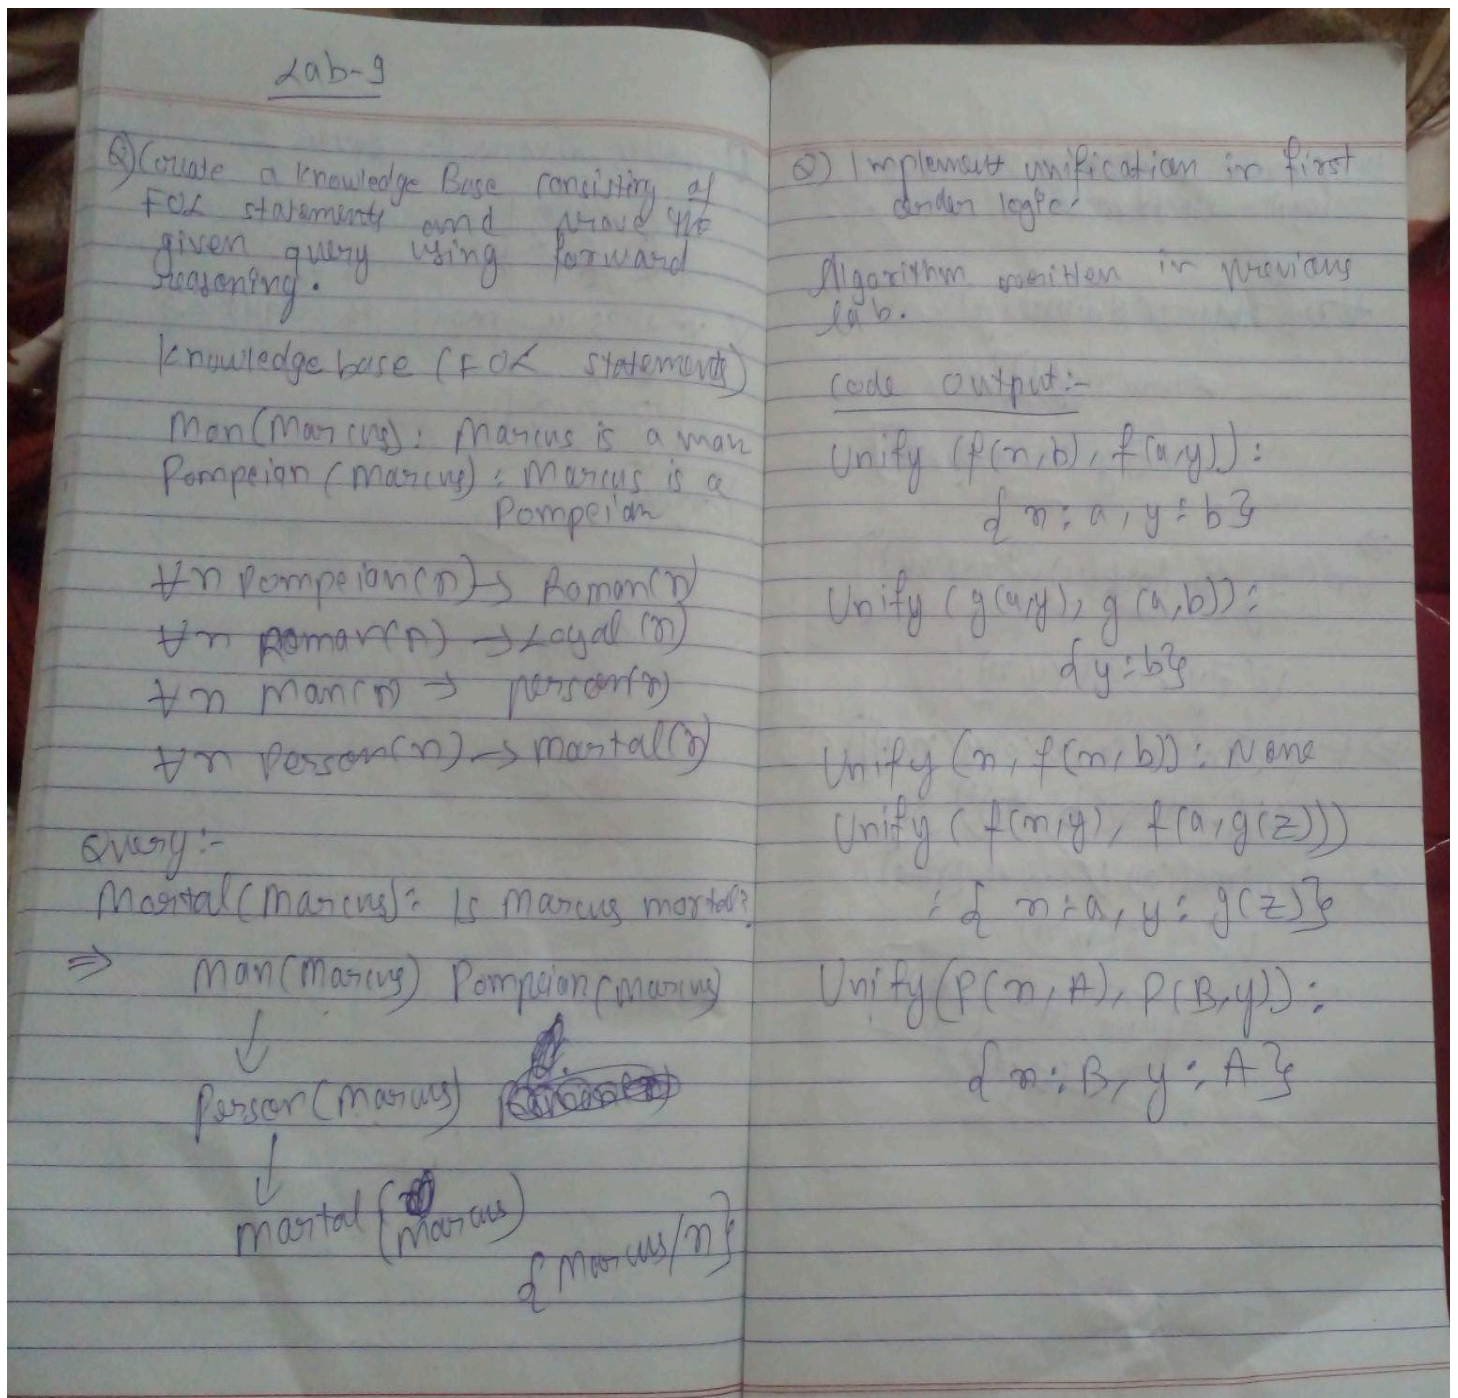 Lab-9
Q) Create a knowledge Base consisting of
FOL statements and prove the
given query using forward
reasoning.
Knowledge base (FOL statements)
Man(Marcus): Marcus is a man
Pompeian (Marcus): Marcus is a
Pompeian
∀x Pompeian(x) → Roman(x)
∀x Roman(x) → Loyal(x)
∀x Man(x) → person(x)
∀x Person(x) → mortal(x)
Query:-
Mortal(Marcus): Is Marcus mortal?
⇒ Man(Marcus) Pompeian(Marcus)
↓
Person(Marcus)
↓
mortal(Marcus)
{Marcus/x}
Q) Implement unification in first
order logic.
Algorithm written in previous
lab.
Code output:-
Unify (f(x,b), f(a,y)):
{x:a, y:b}
Unify (g(a,y), g(a,b)):
{y:b}
Unify (x, f(x,b)): None
Unify (f(x,y), f(a,g(z)))
: {x:a, y:g(z)}
Unify(P(x,A), P(B,y)):
{x:B, y:A}